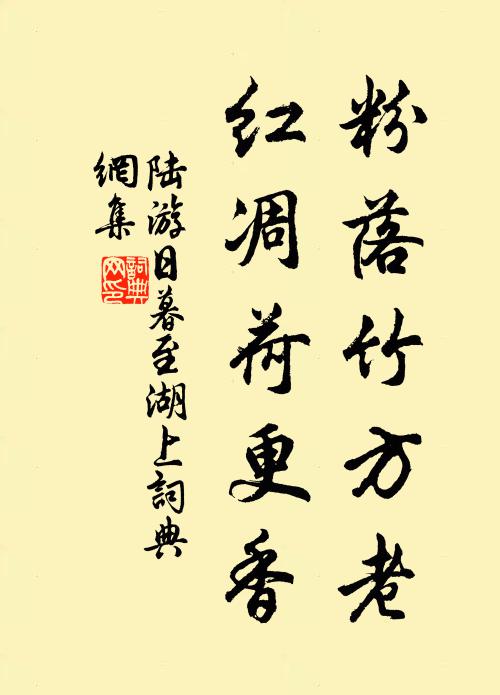 粉落竹方老
红凋荷更香
陆游日暮至湖上詞典
網集
詞典網印